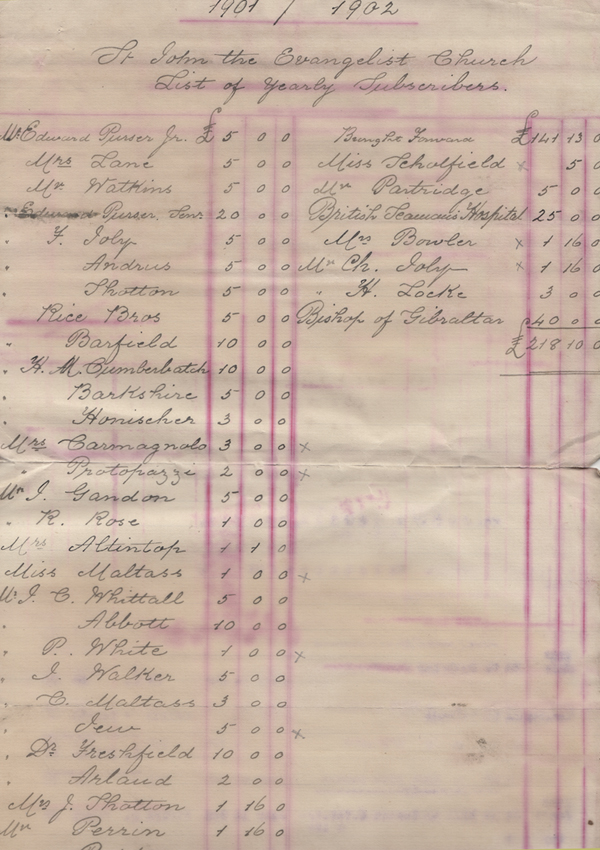 1901 / 1902
St John the Evangelist Church
List of Yearly Subscribers.
Mr Edward Purser Jr. £ 5 0 0
Mrs Lane 5 0 0
Mr Watkins 5 0 0
" Edward Purser. Senr 20 0 0
" F. Joly 5 0 0
" Andrus 5 0 0
" Shotton 5 0 0
Rice Bros 5 0 0
" Barfield 10 0 0
" H. M. Cumberbatch 10 0 0
" Barkshire 5 0 0
" Honischer 3 0 0
Mrs Carmagnolo 3 0 0 x
" Protopazzi 2 0 0 x
Mr J. Gandon 5 0 0
" R. Rose 1 0 0
Mrs Altintop 1 1 0
Miss Maltass 1 0 0 x
Mr J. C. Whittall 5 0 0
" Abbott 10 0 0
" P. White 1 0 0 x
" J. Walker 5 0 0
" C. Maltass 3 0 0
" Jew 5 0 0 x
" Dr Freshfield 10 0 0
" Arlaud 2 0 0
Mrs J. Shotton 1 16 0
Mr Perrin 1 16 0
Brought Forward £141 13 0
Miss Scholfield x 5 0
Mr Partridge 5 0 0
British Seaman's Hospital 25 0 0
Mrs Bowler x 1 16 0
Mr Ch. Joly x 1 16 0
" H. Locke 3 0 0
Bishop of Gibraltar £40 0 0
£218 10 0